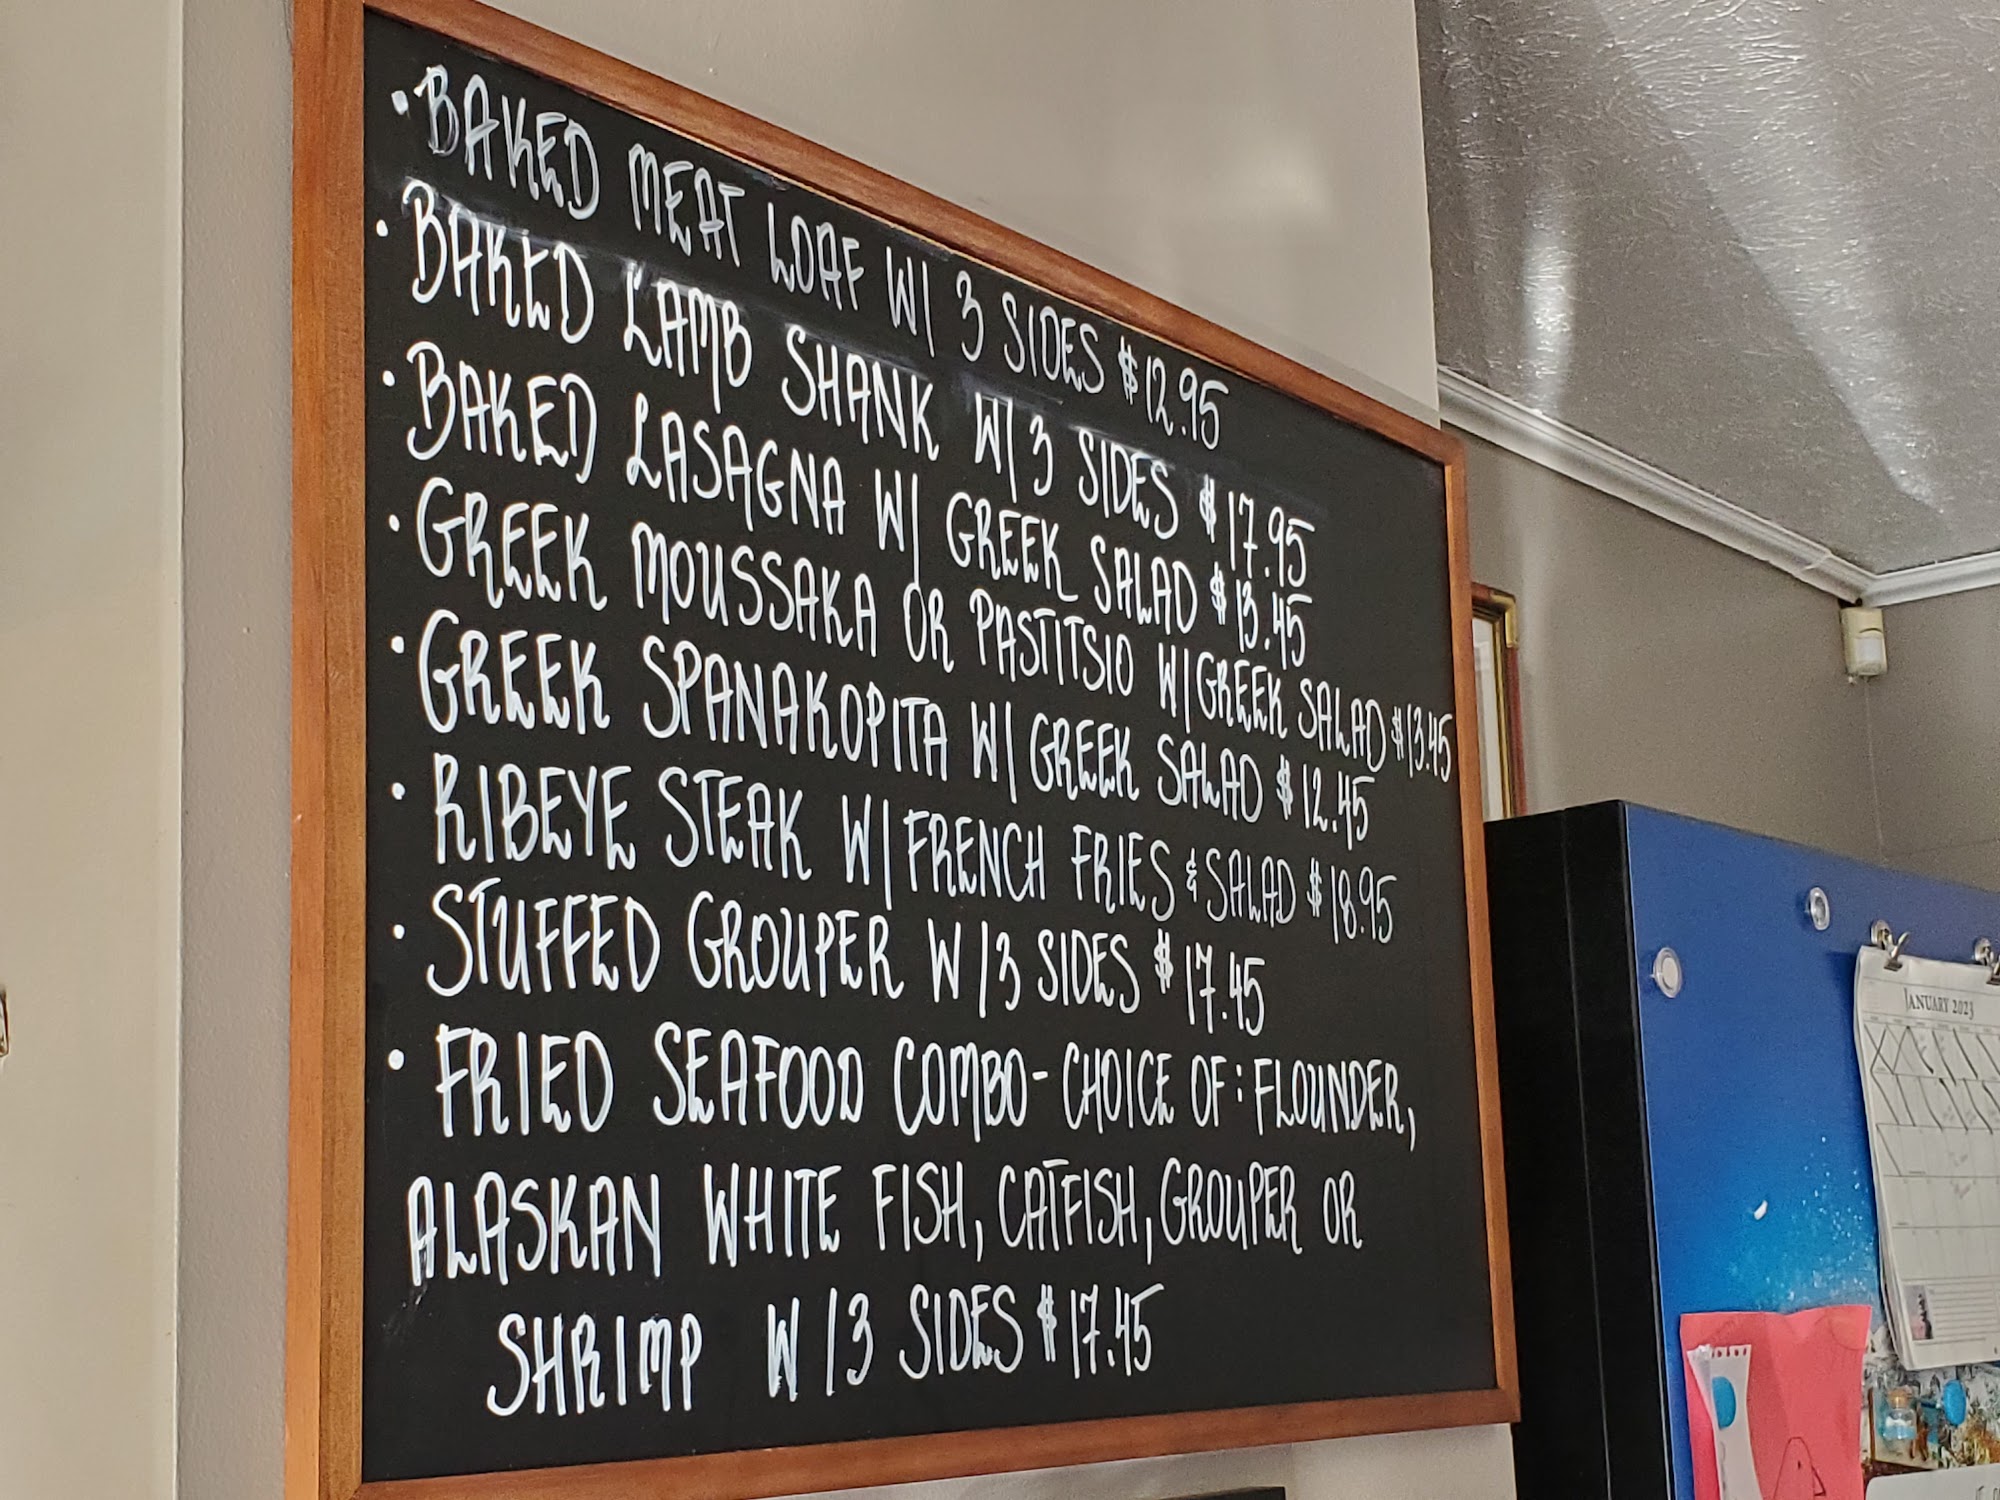 • BAKED MEAT LOAF W/ 3 SIDES $12.95
• BAKED LAMB SHANK W/ 3 SIDES $17.95
• BAKED LASAGNA W/ GREEK SALAD $13.45
• GREEK MOUSSAKA OR PASTITSIO W/GREEK SALAD $13.45
• GREEK SPANAKOPITA W/ GREEK SALAD $12.45
• RIBEYE STEAK W/ FRENCH FRIES & SALAD $18.95
• STUFFED GROUPER W/3 SIDES $17.45
• FRIED SEAFOOD COMBO-CHOICE OF: FLOUNDER,
ALASKAN WHITE FISH, CATFISH, GROUPER OR
SHRIMP W/3 SIDES $17.45
JANUARY 2023